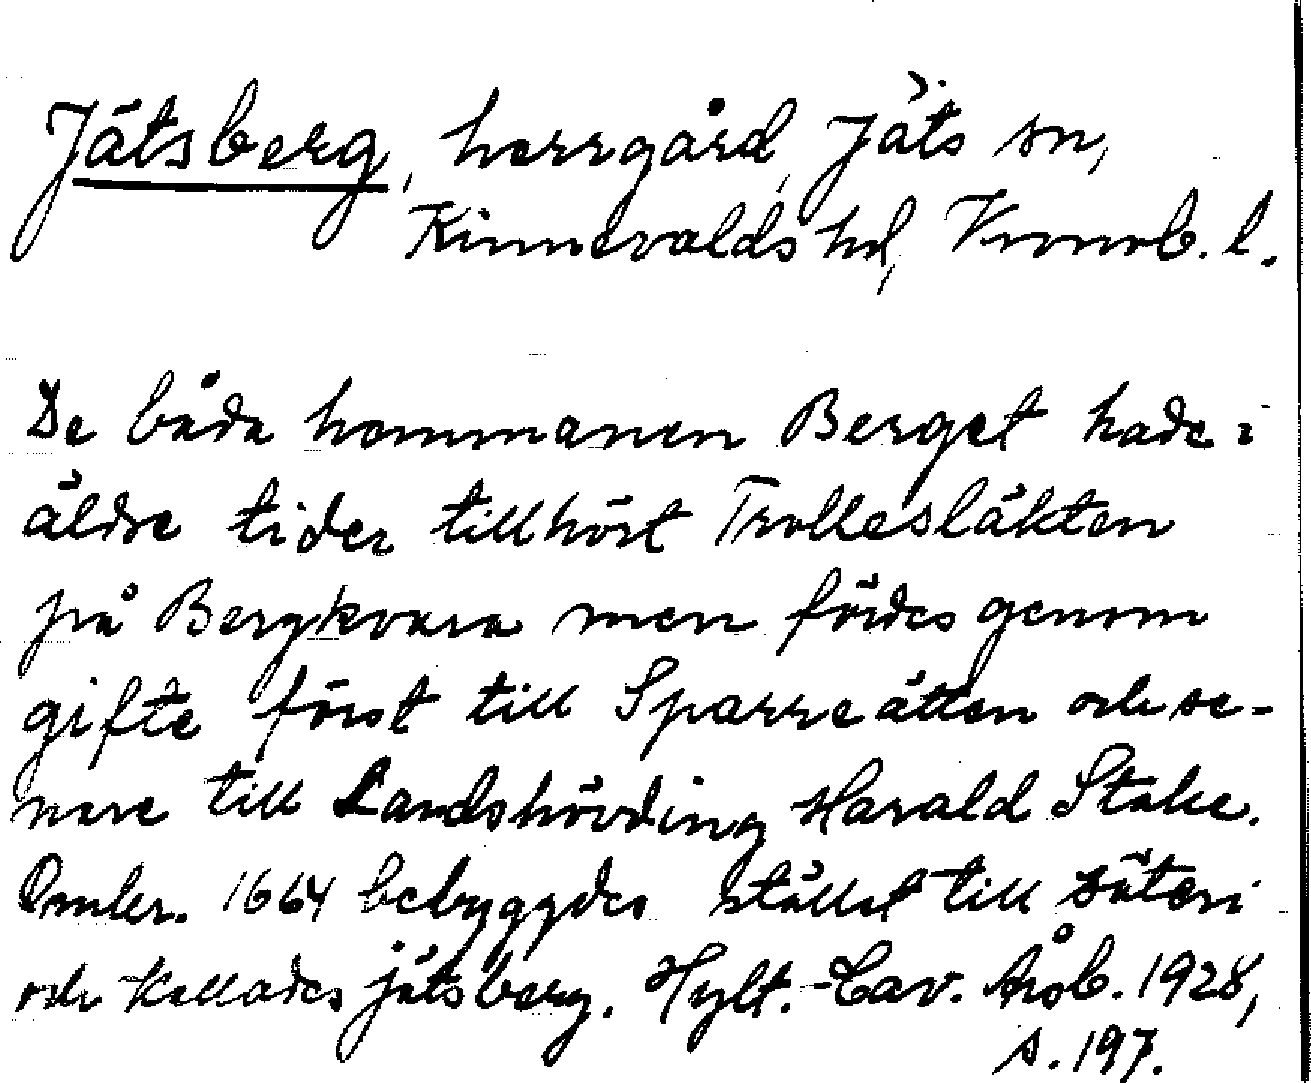 Jätsberg, herrgård, Jäts sn,
Kinnevalds hd, Kronob. l.
De båda hemmanen Berget hade i
äldre tider tillhört Trollesläkten
på Bergkvara men fördes genom
gifte först till Sparreätten och se-
nare till Landshövding Harald Stake.
Omkr. 1664 bebyggdes stället till säteri
och kallades jätsberg. Hylt.-Cav. Årsb. 1928,
s. 197.